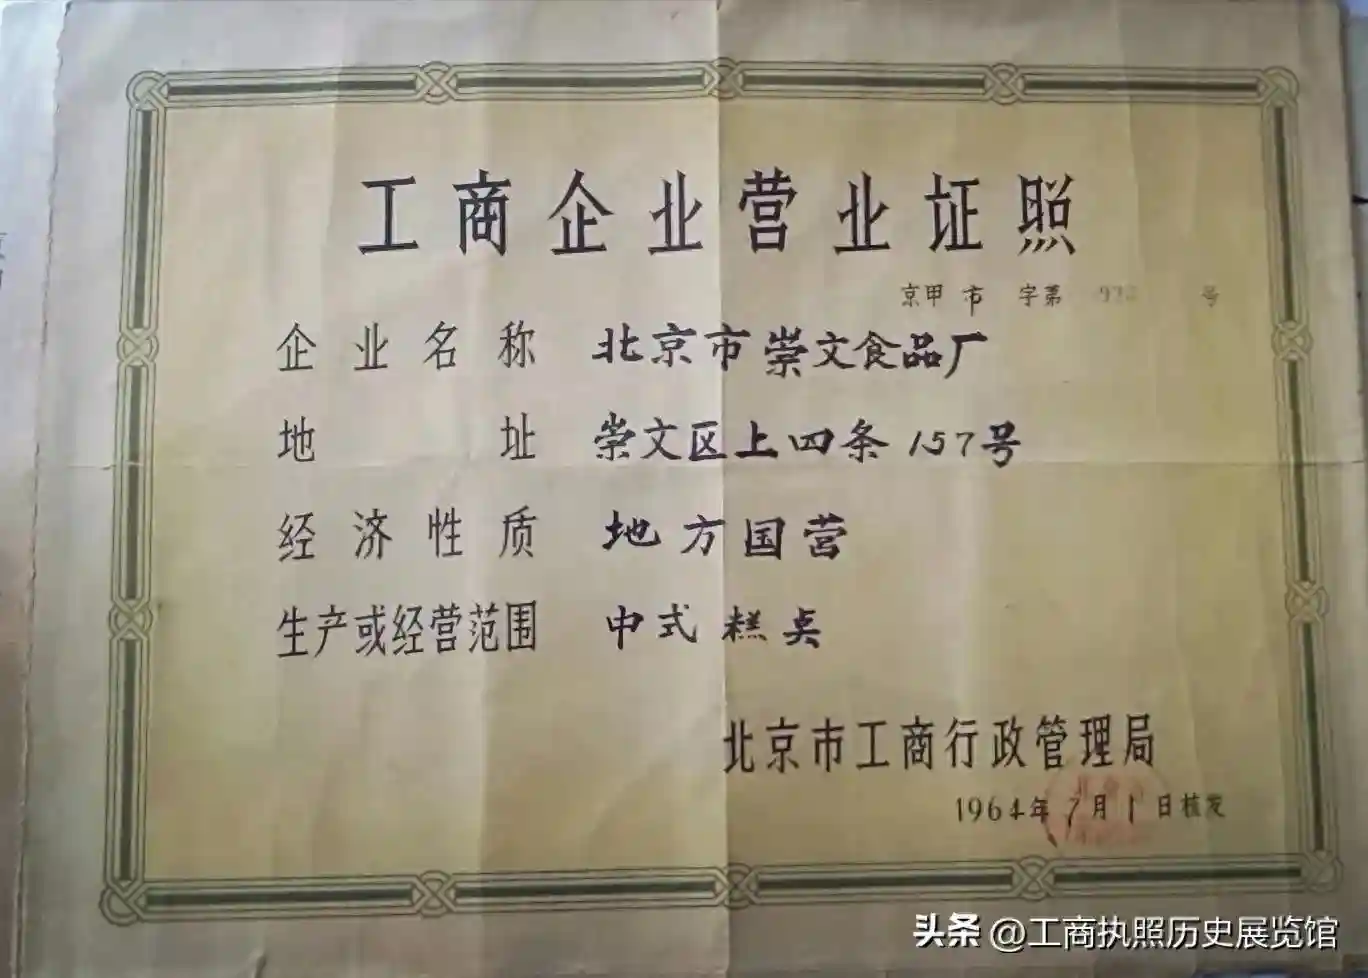 工商企业营业证照
京甲 市 字第 号
企业名称 北京市崇文食品厂
地址 崇文区上四条157号
经济性质 地方国营
生产或经营范围 中式糕点
北京市工商行政管理局
1964年7月1日核发
头条 @工商执照历史展览馆